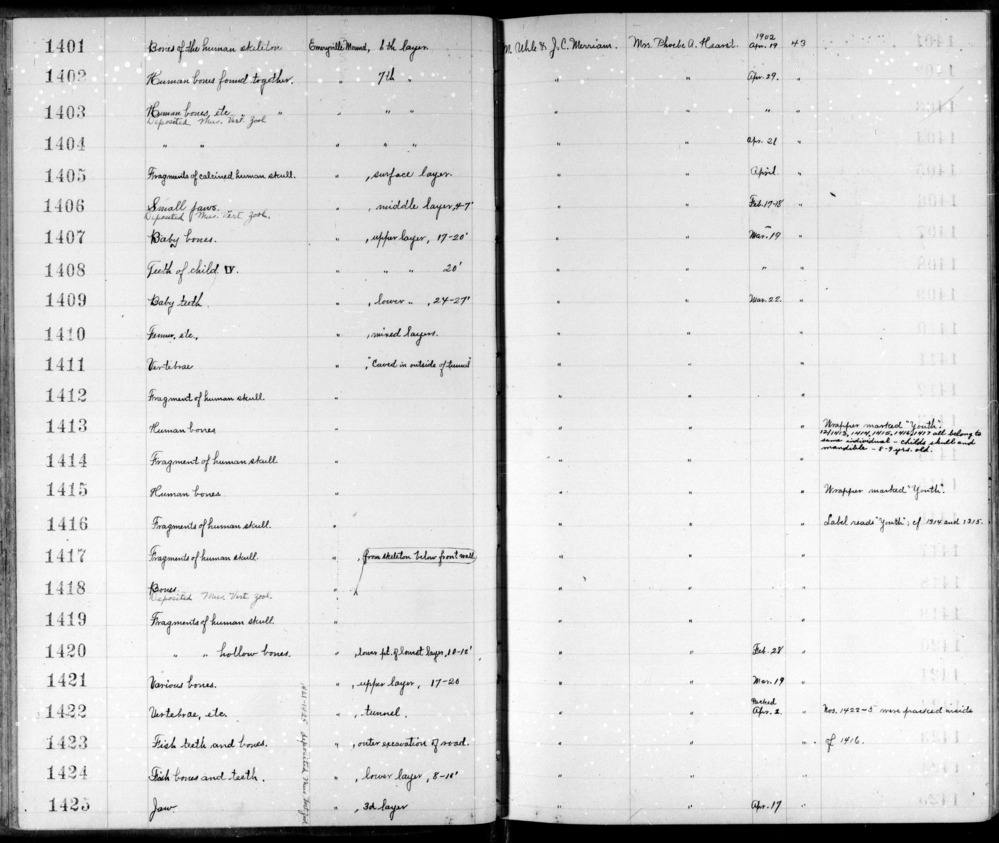 1401 Bones of the human skeleton Emeryville Mound, 6th layer. M. Uhle & J.C. Merriam. Mrs. Phoebe A. Hearst. 1902 Apr. 19 43
1402 Human bones found together. " 7th " " " Apr. 29. "
1403 Human bones, etc. " " " " " " " "
Deposited Mus. Vert. Zool
1404 " " " " " " " Apr. 21 "
1405 Fragments of calcined human skull. " , surface layer. " " April "
1406 Small jaws. " , middle layer, 4-7' " " Feb. 17-18 "
Deposited Mus. Vert. Zool.
1407 Baby bones. " , upper layer, 17-20' " " Mar. 19 "
1408 Teeth of child IV. " " " 20' " " " "
1409 Baby teeth. " , lower " , 24-27' " " Mar. 22. "
1410 Femur, etc., " , mixed layers. " " "
1411 Vertebrae " , "Caved in outside of tunnel" " " "
1412 Fragment of human skull. " " " "
1413 Human bones " " " " Wrapper marked "Youth".
12/1413, 1414, 1415, 1416, 1417 all belong to
same individual - childs skull and
mandible - 8-9 yrs. old.
1414 Fragment of human skull " " " "
1415 Human bones " " " " Wrapper marked "Youth".
1416 Fragments of human skull. " " " " Label reads "Youth"; cf 1314 and 1315.
1417 Fragments of human skull. " , from skeleton below front wall " " "
1418 Bones " , " " "
Deposited Mus. Vert. Zool.
1419 Fragments of human skull. " " " "
1420 " " hollow bones. " , lower pt. of lowest layer, 10-12' " " Feb. 28 "
1421 Various bones. " , upper layer, 17-20 " " Mar. 19 "
1422 Vertebrae, etc. " , tunnel. " " Packed Apr. 2. " Nos. 1422-5 were packed inside
1423 Fish teeth and bones. " , outer excavation of road. " " " of 1416.
1424 Fish bones and teeth. " , lower layer, 8-10' " " "
1425 Jaw " , 3d layer " " Apr. 17 "
1421-1425 deposited Mus Vert Zool